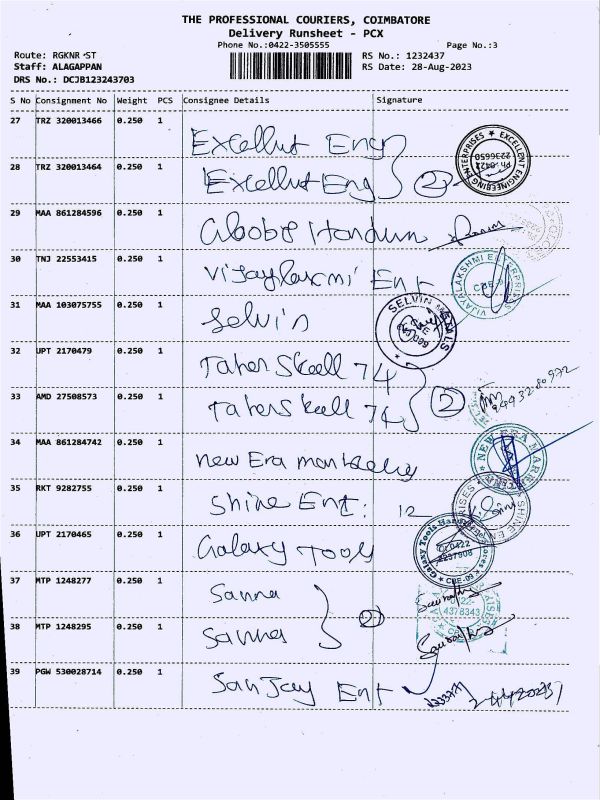 THE PROFESSIONAL COURIERS, COIMBATORE
Delivery Runsheet - PCX
Phone No.:0422-3505555 Page No.:3
Route: RGKNR ST RS No.: 1232437
Staff: ALAGAPPAN RS Date: 28-Aug-2023
DRS No.: DCJB123243703
S No Consignment No Weight PCS Consignee Details Signature
27 TRZ 320013466 0.250 1 Excellut Eng
EXCELLENT ENGINEERING ENTERPRISES
28 TRZ 320013464 0.250 1 Excellut Eng 2
29 MAA 861284596 0.250 1
30 TNJ 22553415 0.250 1 Vijaylaxmi Ent
VIJAYALAKSHMI ENTERPRISES
31 MAA 103075755 0.250 1 Selvin
SELVIN
32 UPT 2170479 0.250 1 Taher Skell 74
33 AMD 27508573 0.250 1 Taher Skell 74 2
34 MAA 861284742 0.250 1 New Era
NEW ERA
35 RKT 9282755 0.250 1 Shine Ent: 12
SHINE
36 UPT 2170465 0.250 1 Galaxy Tools
Galaxy Tools Hardware Stores
CBE-09
37 MTP 1248277 0.250 1 Sanna
4378343
38 MTP 1248295 0.250 1 Sanna 2
39 PGW 530028714 0.250 1 Sanjay Ent